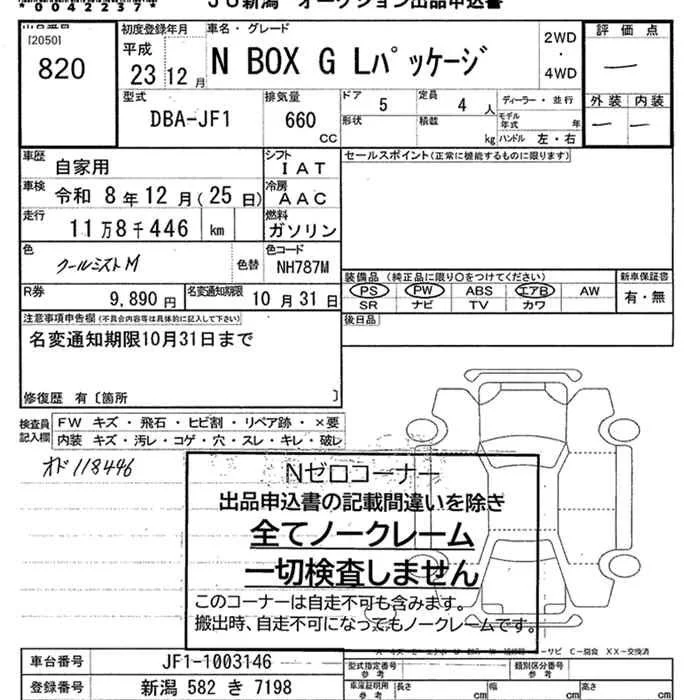 *0042237*
JU新潟 オークション出品申込書
[2050]
820
初度登録年月
平成
23 12 月
車名・グレード
N BOX G Lパッケージ
2WD
・
4WD
評価点
—
外装 内装
— —
型式
DBA-JF1
排気量
660
CC
ドア 5
定員 4 人
形状
積載 kg
ディーラー・並行
モデル年式 年
ハンドル 左・右
車歴 自家用
シフト IAT
セールスポイント(正常に機能するものに限ります)
車検 令和 8 年 12 月(25 日)
冷房 AAC
走行 11万8千446 km
燃料 ガソリン
色 クールミストM
色替
色コード NH787M
R券 9,890 円
名変通知期限 10 月 31 日
装備品(純正品に限り○をつけてください)
PS PW ABS エアB AW
SR ナビ TV カワ
新車保証書
有・無
後日品
注意事項申告欄(不具合内容等は具体的に記入して下さい)
名変通知期限10月31日まで
修復歴 有〔箇所 〕
検査員記入欄
FW キズ・飛石・ヒビ割・リペア跡・×要
内装 キズ・汚レ・コゲ・穴・スレ・キレ・破レ
オド118446
Nゼロコーナー
出品申込書の記載間違いを除き
全てノークレーム
一切検査しません
このコーナーは自走不可も含みます。
搬出時、自走不可になってもノークレームです。
XX-交換済
車台番号 JF1-1003146
型式指定番号 参考
類別区分番号 参考
登録番号 新潟 582 き 7198
車庫証明用 参考
長さ cm
幅 cm
高さ cm